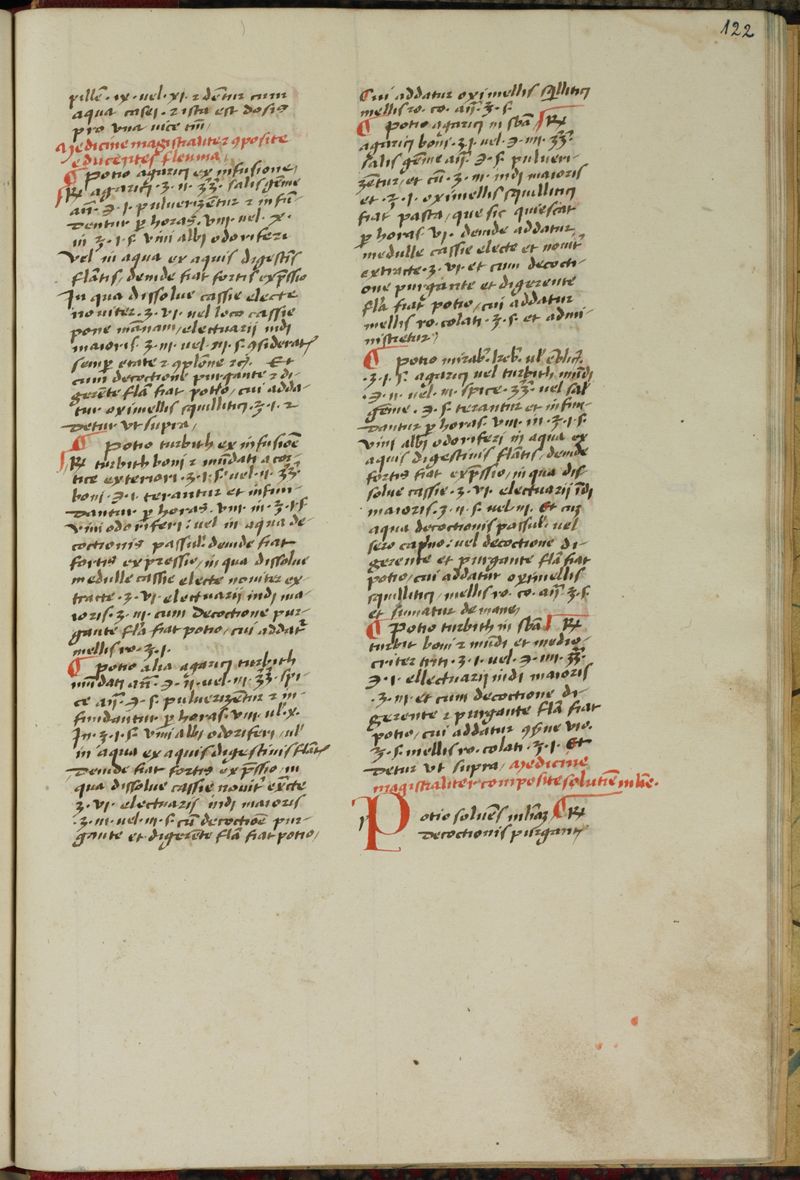 122
pille͞. ix. vel. xi. ⁊ de͞ntur cum
aqua casei. ⁊ ista est dosis
pro una vice tm̄
Medicine magistraliter ꝯposite
educentes fleuma
¶ Potio agarici ex infusione,
℞ agarici. ʒ. ij. ʒʒ. salis ge͞me
an̄. ℈. j. pulverize͞tur ⁊ infu͞-
dentur p̱ horas. viij. vel. x.
in ʒ. j. s̄. vini albi odoriferi
Vel in aqua ex aquis digestis
fla͞tis, deinde fiat fortis exp̄ssio
In qua dissolve cassie electe
noviter. ʒ. vi. vel loco cassie
pone ma͞nam, electuarij indi
maioris. ʒ. iij. vel. iij. s̄. ꝯsideratis
semp̱ etate ⁊ ꝯplo͞ne ⁊c͞. Et
cum decoctione purgante ⁊ di-
gere͞te fla͞ fiat potio, cui adda-
tur oximellis squillitici. ʒ. j. ⁊
detur ut supra,
¶ Potio turbith ex infusio͞e
℞ turbith boni ⁊ mu͞dati a cor-
tice exteriori. ʒ. j. s̄. vel. ij. ʒʒ.
boni. ℈. j. terantur et infun-
dantur p̱ horas. viij. in. ʒ. j. s̄
vini odoriferi: vel in aqua de-
coctionis passul͞. deinde fiat
fortis expressio, in qua dissolve
medulle cassie electe noviter ex-
tracte. ʒ. vi. electuarij indi ma-
ioris. ʒ. iij. cum decoctione pur-
gante fla͞ fiat potio, cui addat᷑
mellis ro. ʒ. j.
¶ Potio alia agarici turbith
mu͞dati an̄. ℈. ij. vel. iij. ʒʒ. spi-
ce an̄. ℈. s̄. pulverize͞tur ⁊ in-
fundantur p̱ horas. viij. ul͞. x.
In. ʒ. j. s̄. vini albi odoriferi, ul͞
in aqua ex aquis digestivis fla͞tis
deinde fiat fortis exp̄ssio, in
qua dissolve cassie novit͛ ex͞cte
ʒ. vi. electuarij indi maioris
. ʒ. iij. vel. iij. s̄. cu͞ decoctio͞e pur-
gante et digere͞te fla͞ fiat potio,
Cui addatur oximellis sq̄llitici
mellis ro. co. an̄. ʒ. s̄.
¶ Potio agarici in sb͞a ℞
agarici boni. ʒ. j. vel. ℈. iiij. ʒʒ.
salis ge͞me an̄. ℈. s̄. pulveri-
ze͞tur, et cu͞. ʒ. iij. indi maioris
et. ʒ. j. oximellis squillitici
fiat pasta, que sic quiescat
p̱ horas vi. deinde addatur
medulle cassie electe et novit͛
extracte. ʒ. vi. et cum decocti-
one purgante et digerente
fla͞ fiat potio, cui addatur
mellis ro. colati. ʒ. s̄. et admi-
nistretur,
¶ potio mirab͞. keb͞. ul͞ e͞blic͞.
. ʒ. j. s̄. agarici vel turbith mu͞di
. ℈. ij. vel. iij. spice. ʒʒ. vel sal͞
ge͞me. ℈. s̄. terantur et infun-
dantur p̱ horas. viij. in. ʒ. j. s̄.
vini albi odoriferi in aqua ex
aquis digestivis fla͞tis, deinde
fortis fiat exp̄ssio, in qua dis-
solve cassie. ʒ. vi. electuarij i͞di
maioris. ʒ. ij. s̄. vel. iij. Et cu͞
aqua decoctionis passul͞. vel
sero cap̄no: vel decoctione di-
gerente et purgante fla͞ fiat
potio, cui addatur oximellis
squillitici, mellis ro. co. an̄. ʒ. s̄.
et sumatur de mane,
¶ Potio turbith in sb͞a ℞
turbit boni ⁊ mu͞di et medio-
criter triti. ʒ. j. vel. ℈. iiij. ʒʒ.
℈. j. ellectuarij indi maioris
. ʒ. iij. et cum decoctione di-
gerente ⁊ purgante fla͞ fiat
potio, cui addatur ꝯs͞ve vio.
ʒ. s̄. mellis ro. colati. ʒ. j. Et
detur ut supra, Medicine
magistraliter composite solutie͞ m͞lie.
Potio solve͞s m͞liaʒ ¶ ℞
decoctionis purgant͛